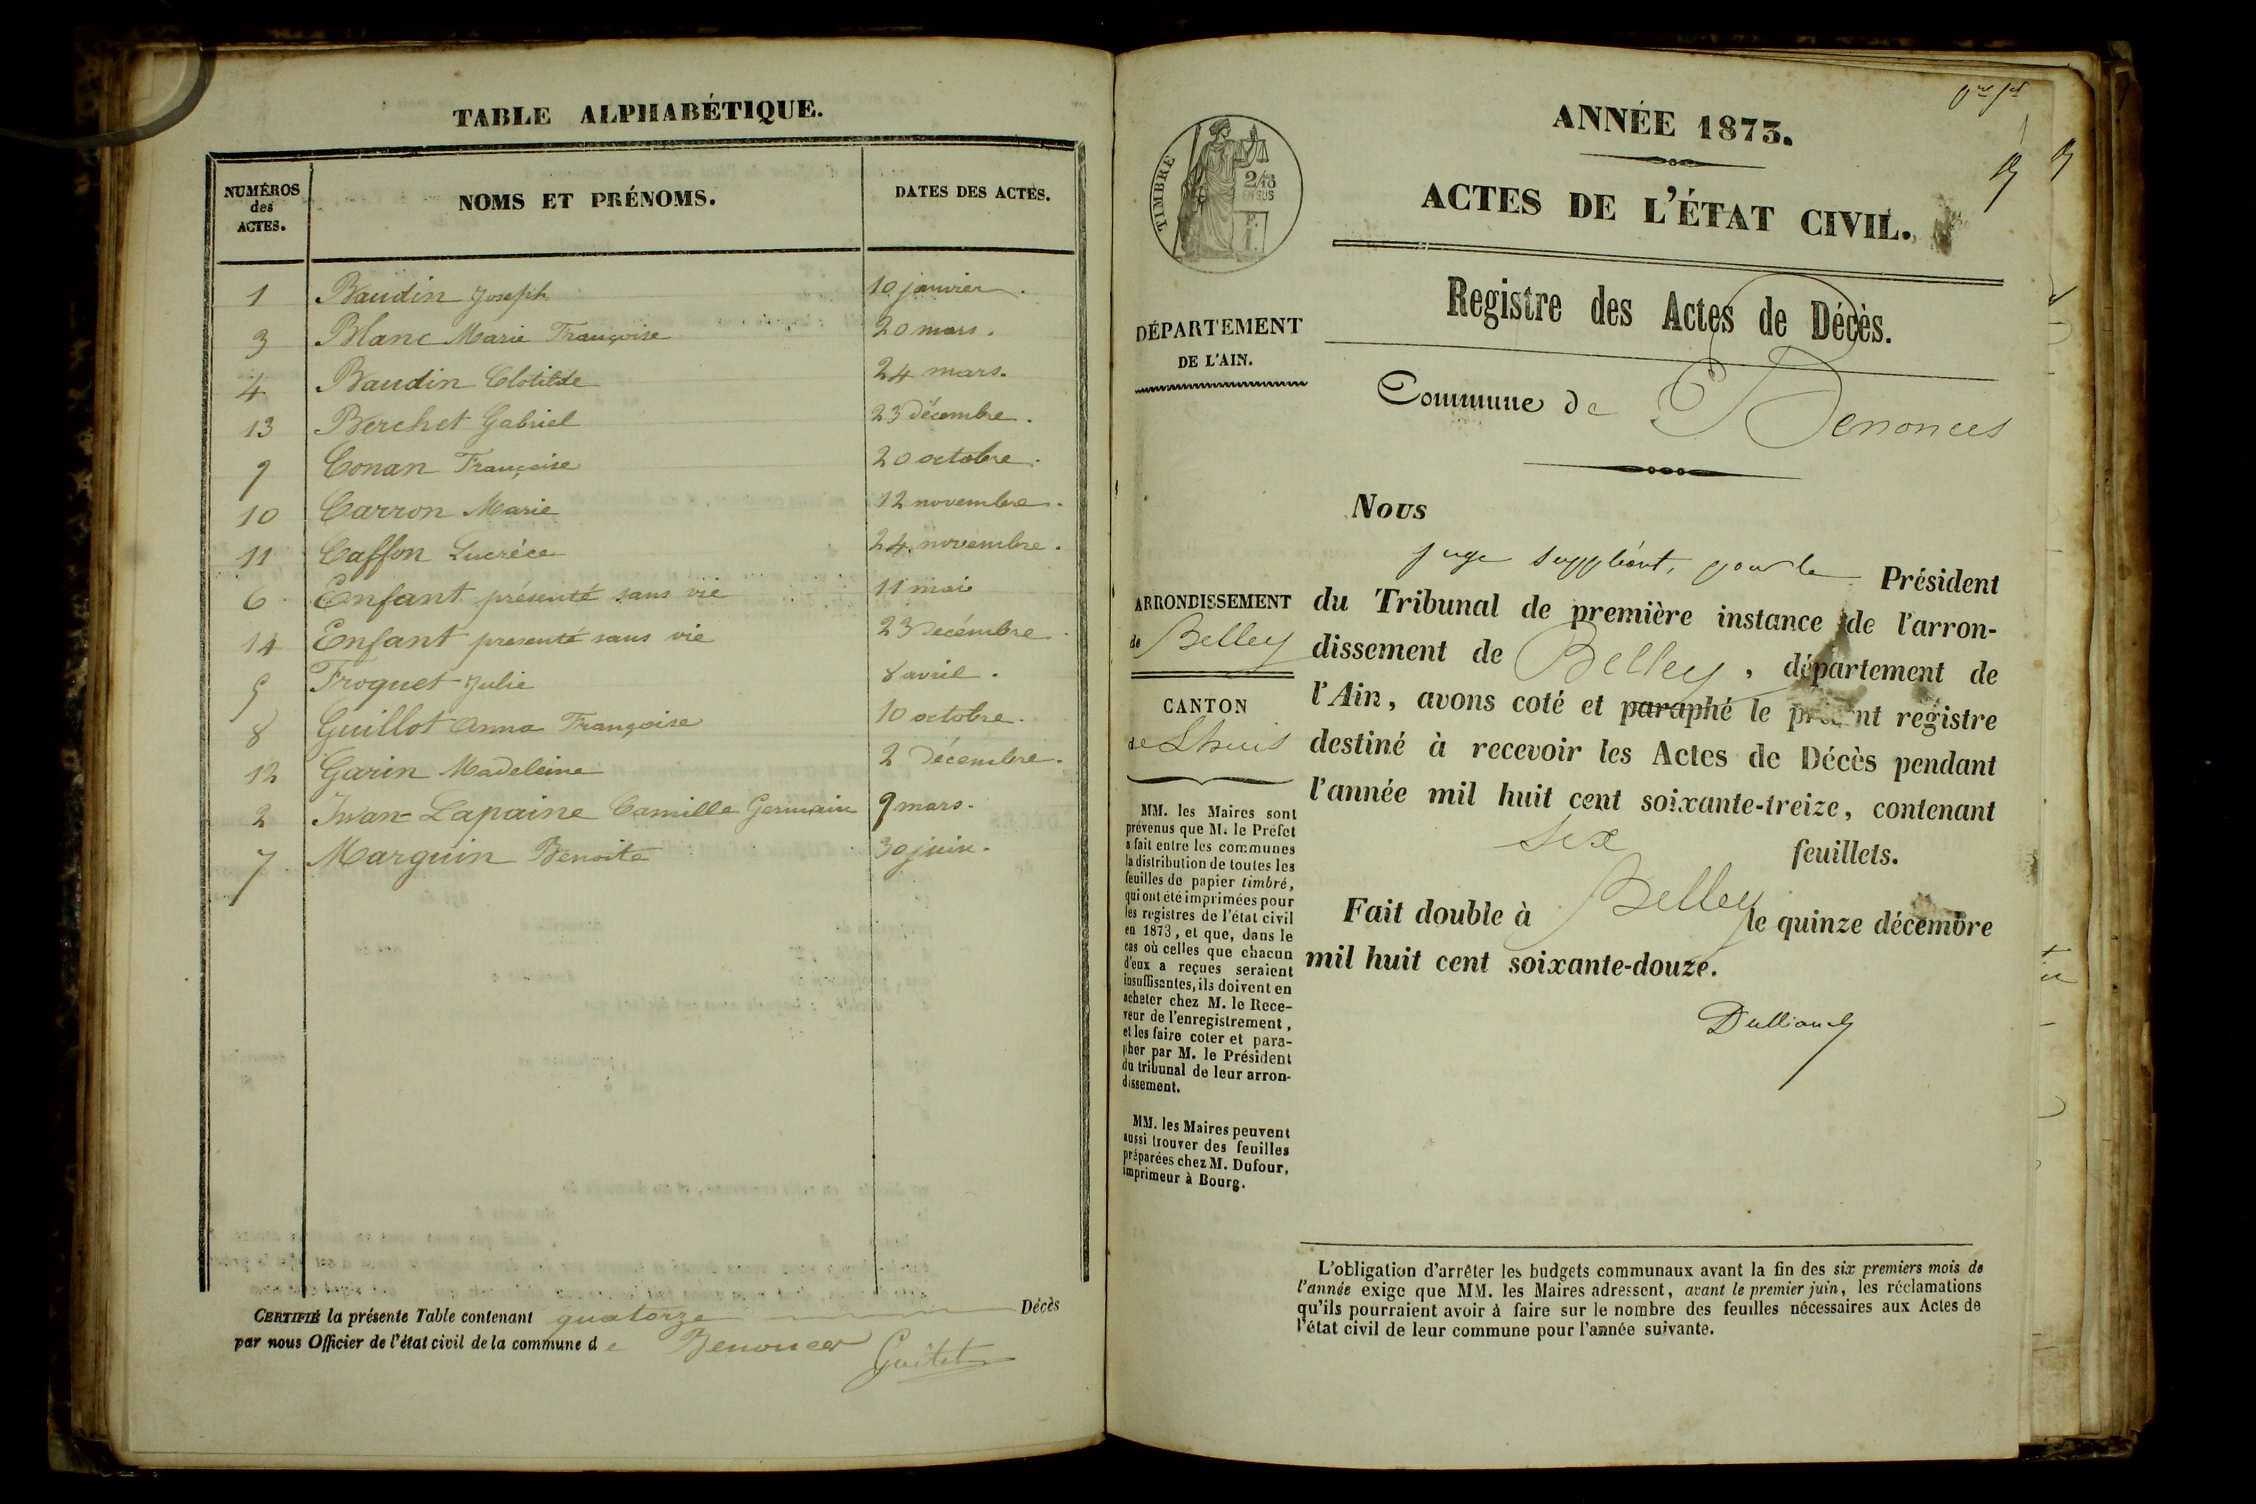 TABLE ALPHABÉTIQUE.
NUMÉROS des ACTES. NOMS ET PRÉNOMS. DATES DES ACTES.
1 Baudin Joseph 10 janvier.
3 Blanc Marie Françoise 20 mars.
4 Baudin Clotilde 24 mars.
13 Berchet Gabriel 23 décembre.
9 Conan Françoise 20 octobre.
10 Carron Marie 12 novembre.
11 Caffon Lucréce 24 novembre.
6 Enfant présenté sans vie 11 mai
14 Enfant presenté sans vie 23 Decémbre
5 Froquet Julie 8 avril.
8 Guillot Anna Françoise 10 octobre.
12 Garin Madeleine 2 Décembre.
2 Ivan-Lapaine Camille Germain 9 mars.
7 Marguin Benoite 30 juin.
CERTIFIÉ la présente Table contenant quatorze Décès
par nous Officier de l'état civil de la commune de Benonces
Guitet
ANNÉE 1873.
ACTES DE L'ÉTAT CIVIL.
TIMBRE
Registre des Actes de Décès.
DÉPARTEMENT
DE L'AIN.
Commune de Benonces
Nous
juge suppléant, pour le Président
du Tribunal de première instance de l'arron-
dissement de Belley, département de
l'Ain, avons coté et paraphé le présent registre
destiné à recevoir les Actes de Décès pendant
l'année mil huit cent soixante-treize, contenant
six feuillets.
Fait double à Belley le quinze décembre
mil huit cent soixante-douze.
ARRONDISSEMENT
de Belley
CANTON
de Lhuis
MM. les Maires sont
prévenus que M. le Préfet
a fait entre les communes
la distribution de toutes les
feuilles de papier timbré,
qui ont été imprimées pour
les registres de l'état civil
en 1873, et que, dans le
cas où celles que chacun
d'eux a reçues seraient
insuffisantes, ils doivent en
acheter chez M. le Rece-
veur de l'enregistrement,
et les faire coter et para-
pher par M. le Président
du tribunal de leur arron-
dissement.
MM. les Maires peuvent
aussi trouver des feuilles
préparées chez M. Dufour,
imprimeur à Bourg.
L'obligation d'arrêter les budgets communaux avant la fin des six premiers mois de
l'année exige que MM. les Maires adressent, avant le premier juin, les réclamations
qu'ils pourraient avoir à faire sur le nombre des feuilles nécessaires aux Actes de
l'état civil de leur commune pour l'année suivante.